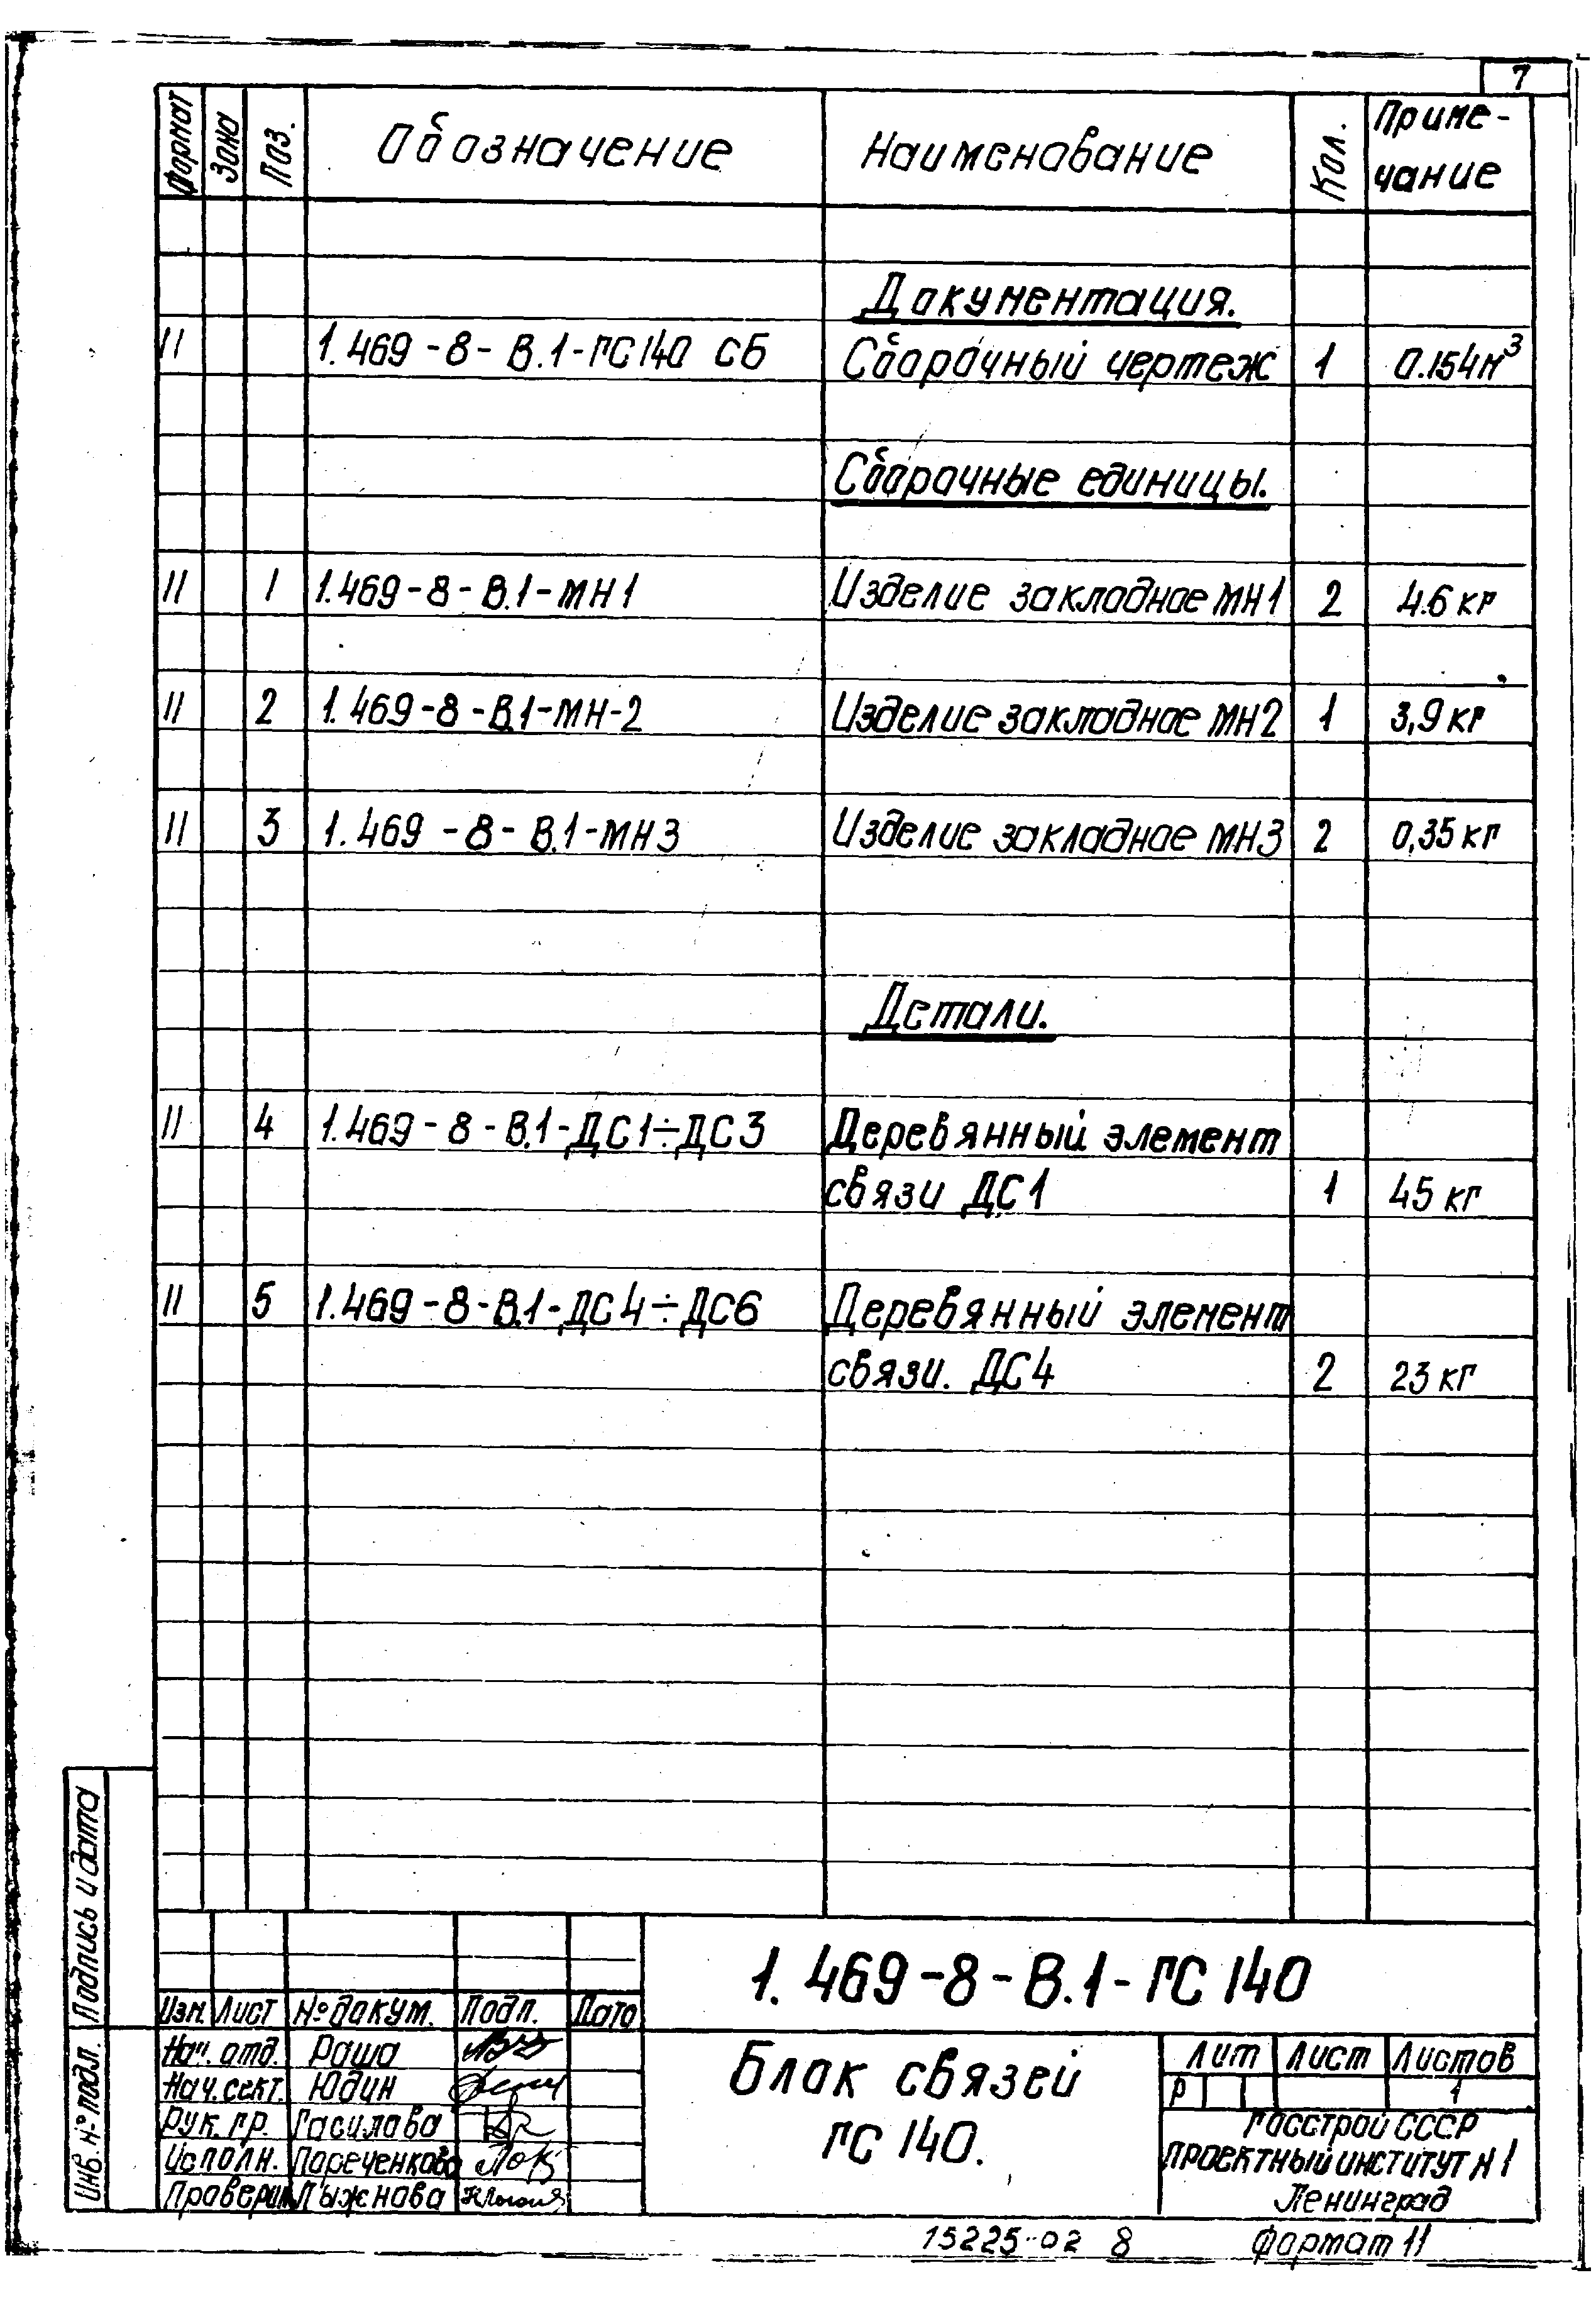 7
Формат Зона Поз. Обозначение Наименование Кол. Приме-
чание
Документация.
11 1.469-8-В.1-ГС140 СБ Сборочный чертеж 1 0.154м³
Сборочные единицы.
11 1 1.469-8-В.1-МН1 Изделие закладное МН1 2 4.6 кг
11 2 1.469-8-В.1-МН-2 Изделие закладное МН2 1 3,9 кг
11 3 1.469-8-В.1-МН3 Изделие закладное МН3 2 0,35 кг
Детали.
11 4 1.469-8-В.1-ДС1÷ДС3 Деревянный элемент
связи ДС1 1 45 кг
11 5 1.469-8-В.1-ДС4÷ДС6 Деревянный элемент
связи. ДС4 2 23 кг
Подпись и дата
Инв. № подл.
1.469-8-В.1-ГС140
Изм. Лист № докум. Подп. Дата
Нач. отд. Раша
Нач. сект. Юдин
Рук. гр. Гасилова
Исполн. Пореченкова
Проверил Лыжнова
Блок связей
ГС 140.
Лит Лист Листов
Р 1
Госстрой СССР
проектный институт №1
Ленинград
15225-02 8 Формат 11